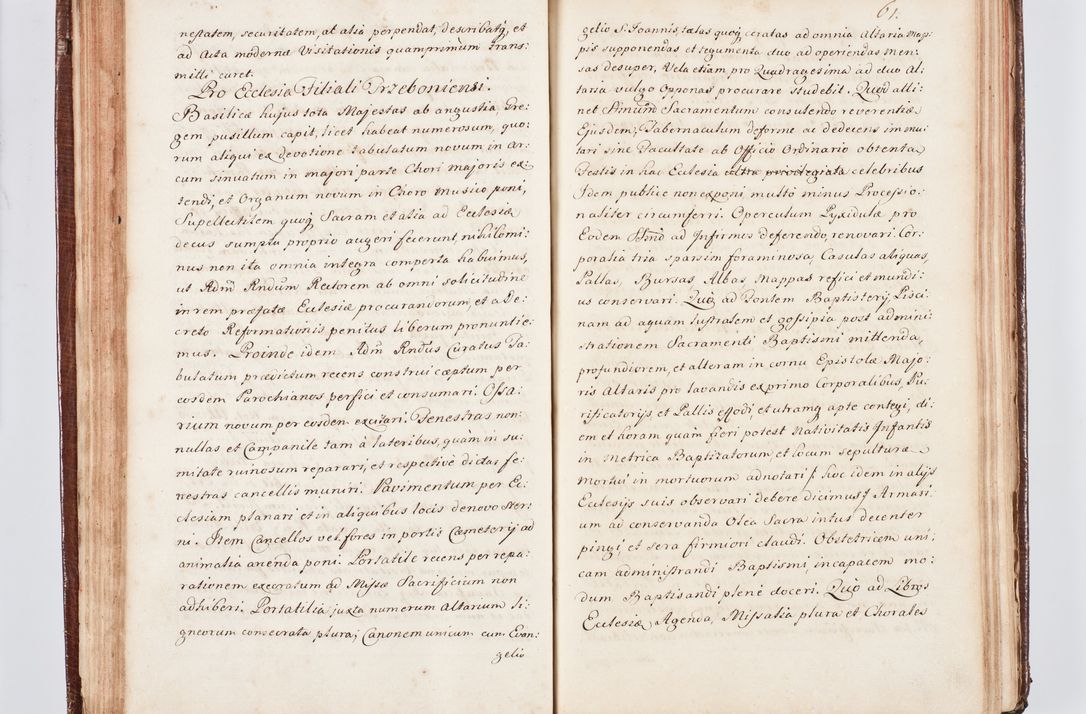 nestatem, securitatem, at alia perpendat, describatq, et
ad Acta moderna Visitationis quamprimum trans-
milli curet.
Pro Ecclesia Filiali Trzeboniensi.
Basilicæ hujus tota Majestas ab angustia, Gre:
gem pusillum capit, licet habeat numerosum, quo:
rum aliqui ex devotione tabulatum novum in ar:
cum sinuatum in majori parte Chori majoris ex:
tendi, et Organum novum in Choro Musico poni,
Supellectilem quoq Sacram et alia ad Ecclesiæ
decus sumptu proprio augeri fecerunt, nihilomi:
nus non ita omnia integra comperta habuimus,
ut Adm Rndum Rectorem ab omni solicitudine
in rem præfatæ Ecclesiæ procurandorum, et a De:
creto Reformationis penitus liberum pronuntie:
mus. Proinde idem Adm Rndus Curatus Ta:
bulatum prædictum recens construi cæptum per
eosdem Parochianos perfici et consumari. Ossa:
rium novum per eosdem excitari. Fenestras non:
nullas et Campanile tam à lateribus, quàm in su:
mitate ruinosum reparari, et respectivè dictas fe:
nestras cancellis muniri. Pavimentum per Ec:
clesiam planari et in aliquibus locis denovo ster:
ni. Item Cancellos vel fores in portis Cæmeterij ad
animalia arcenda poni. Portatile recens per repa:
rationem execratum ad Missæ Sacrificium non
adhiberi. Portatilia juxta numerum Altarium li:
gneorum consecrata plura; Canonem unicum cum Evan:
gelio
61.
gelio S. Joannis, talas quoq ceratas ad omnia Altaria Map:
pis supponendas et tegumenta duo ad operiendas Men:
sas desuper, Vela etiam pro Quadragesima ad duo Al:
taria vulgo Opponas procurare studebit. Quod atti:
net Stmum Sacramentum consulendo reverentiæ
Ejusdem, Tabernaculum deforme ac dedecens immu:
tari sine Facultate ab Officio Ordinario obtenta
Festis in hac Ecclesia extra privilegiata celebribus
Idem publice non exponi, multò minus Processio:
naliter circumferri. Operculum Pyxidulæ pro
Eodem Stmo ad Infirmos deferendo, renovari. Cor:
poralia tria sparsim foraminosa, Casulas aliquas,
Pallas, Bursas Albas Mappas refici et mundi:
us conservari. Quo ad Fontem Baptisterij, Pisci:
nam ad aquam lustralem et gossipia post admini:
strationem Sacramenti Baptismi mittenda,
profundiorem, et alteram in cornu Epistolæ Majo:
ris Altaris pro lavandis ex primo Corporalibus, Pu:
rificatorijs et Pallis effodi, et utramq apte contegi, di:
em et horam quàm fieri potest Nativitatis Infantis
in Metrica Baptizatorum, et locum sepulturæ
Mortui in mortuorum adnotari / hoc idem in alijs
Ecclesijs suis observari debere dicimus / Armari:
um ad conservanda Olea Sacra intus decenter
pingi, et sera firmiori claudi. Obstetricem uni:
cam administrandi Baptismi, incapacem mo:
dum Baptisandi plenè doceri. Quo ad Libros
Ecclesiæ Agenda, Missalia plura et Chorales